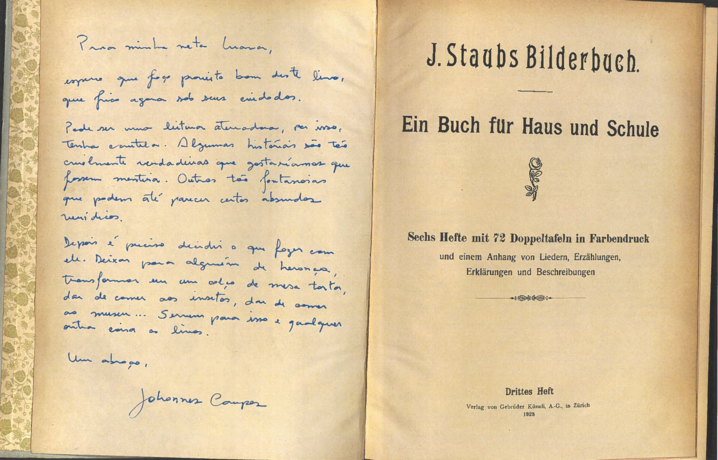 Para minha neta Luana,
espero que faça proveito bom deste livro,
que fica agora sob seus cuidados.
Pode ser uma leitura aterradora, por isso,
tenha cautela. Algumas histórias são tão
cruelmente verdadeiras que gostaríamos que
fossem mentira. Outras tão fantasiosas
que podem até parecer certos absurdos
verídicos.
Depois é preciso decidir o que fazer com
ele. Deixar para alguém de herança,
transformar em um calço de mesa torta,
dar de comer aos insetos, dar de comer
ao museu... Servem para isso e qualquer
outra coisa os livros.
Um abraço,
Johannes
J. Staubs Bilderbuch.
Ein Buch für Haus und Schule
Sechs Hefte mit 72 Doppeltafeln in Farbendruck
und einem Anhang von Liedern, Erzählungen,
Erklärungen und Beschreibungen
Drittes Heft
Verlag von Gebrüder Künzli, A.-G., in Zürich